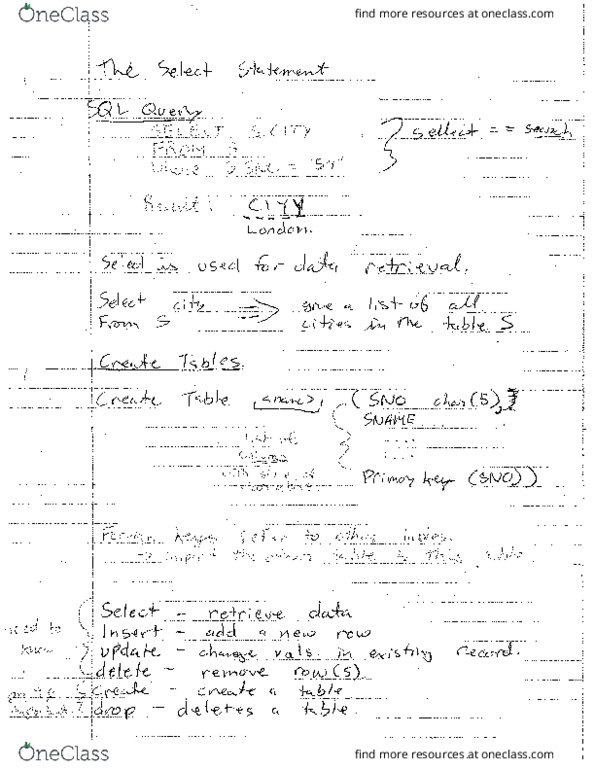 OneClass
find more resources at oneclass.com
The Select Statement
SQL Query
SELECT S.CITY
FROM S
Where
} sellect == search
Result : CITY
London.
Select is used for data retrieval.
Select city ⇒ give a list of all
From S cities in the table S
Create Tables.
Create Table <name>, ( SNO char(5),
SNAME
list of
Primary key (SNO))
Foreign keys refer to other
import the table to this table
Select - retrieve data
Insert - add a new row
need to know
update - change vals in existing record.
delete - remove row(s).
Create - create a table
drop - deletes a table.
OneClass
find more resources at oneclass.com